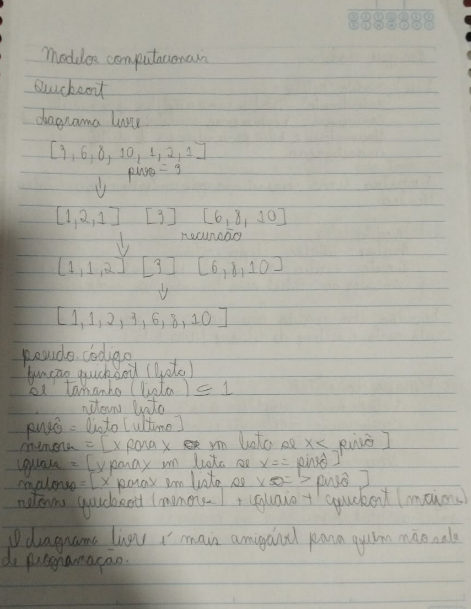 Modelos computacionais
Quicksort
diagrama livre
[3, 6, 8, 10, 1, 2, 1]
pivô = 3
[1, 2, 1] [3] [6, 8, 10]
recursão
[1, 1, 2] [3] [6, 8, 10]
[1, 1, 2, 3, 6, 8, 10]
pseudo-código
função quicksort (lista)
se tamanho (lista) ≤ 1
retorne lista
pivô = lista [ultimo]
menores = [x para x em lista se x < pivô]
iguais = [x para x em lista se x == pivô]
maiores = [x para x em lista se x > pivô]
retorne quicksort (menores) + iguais + quicksort (maiores)
O diagrama livre é mais amigável para quem não sabe
de programação.